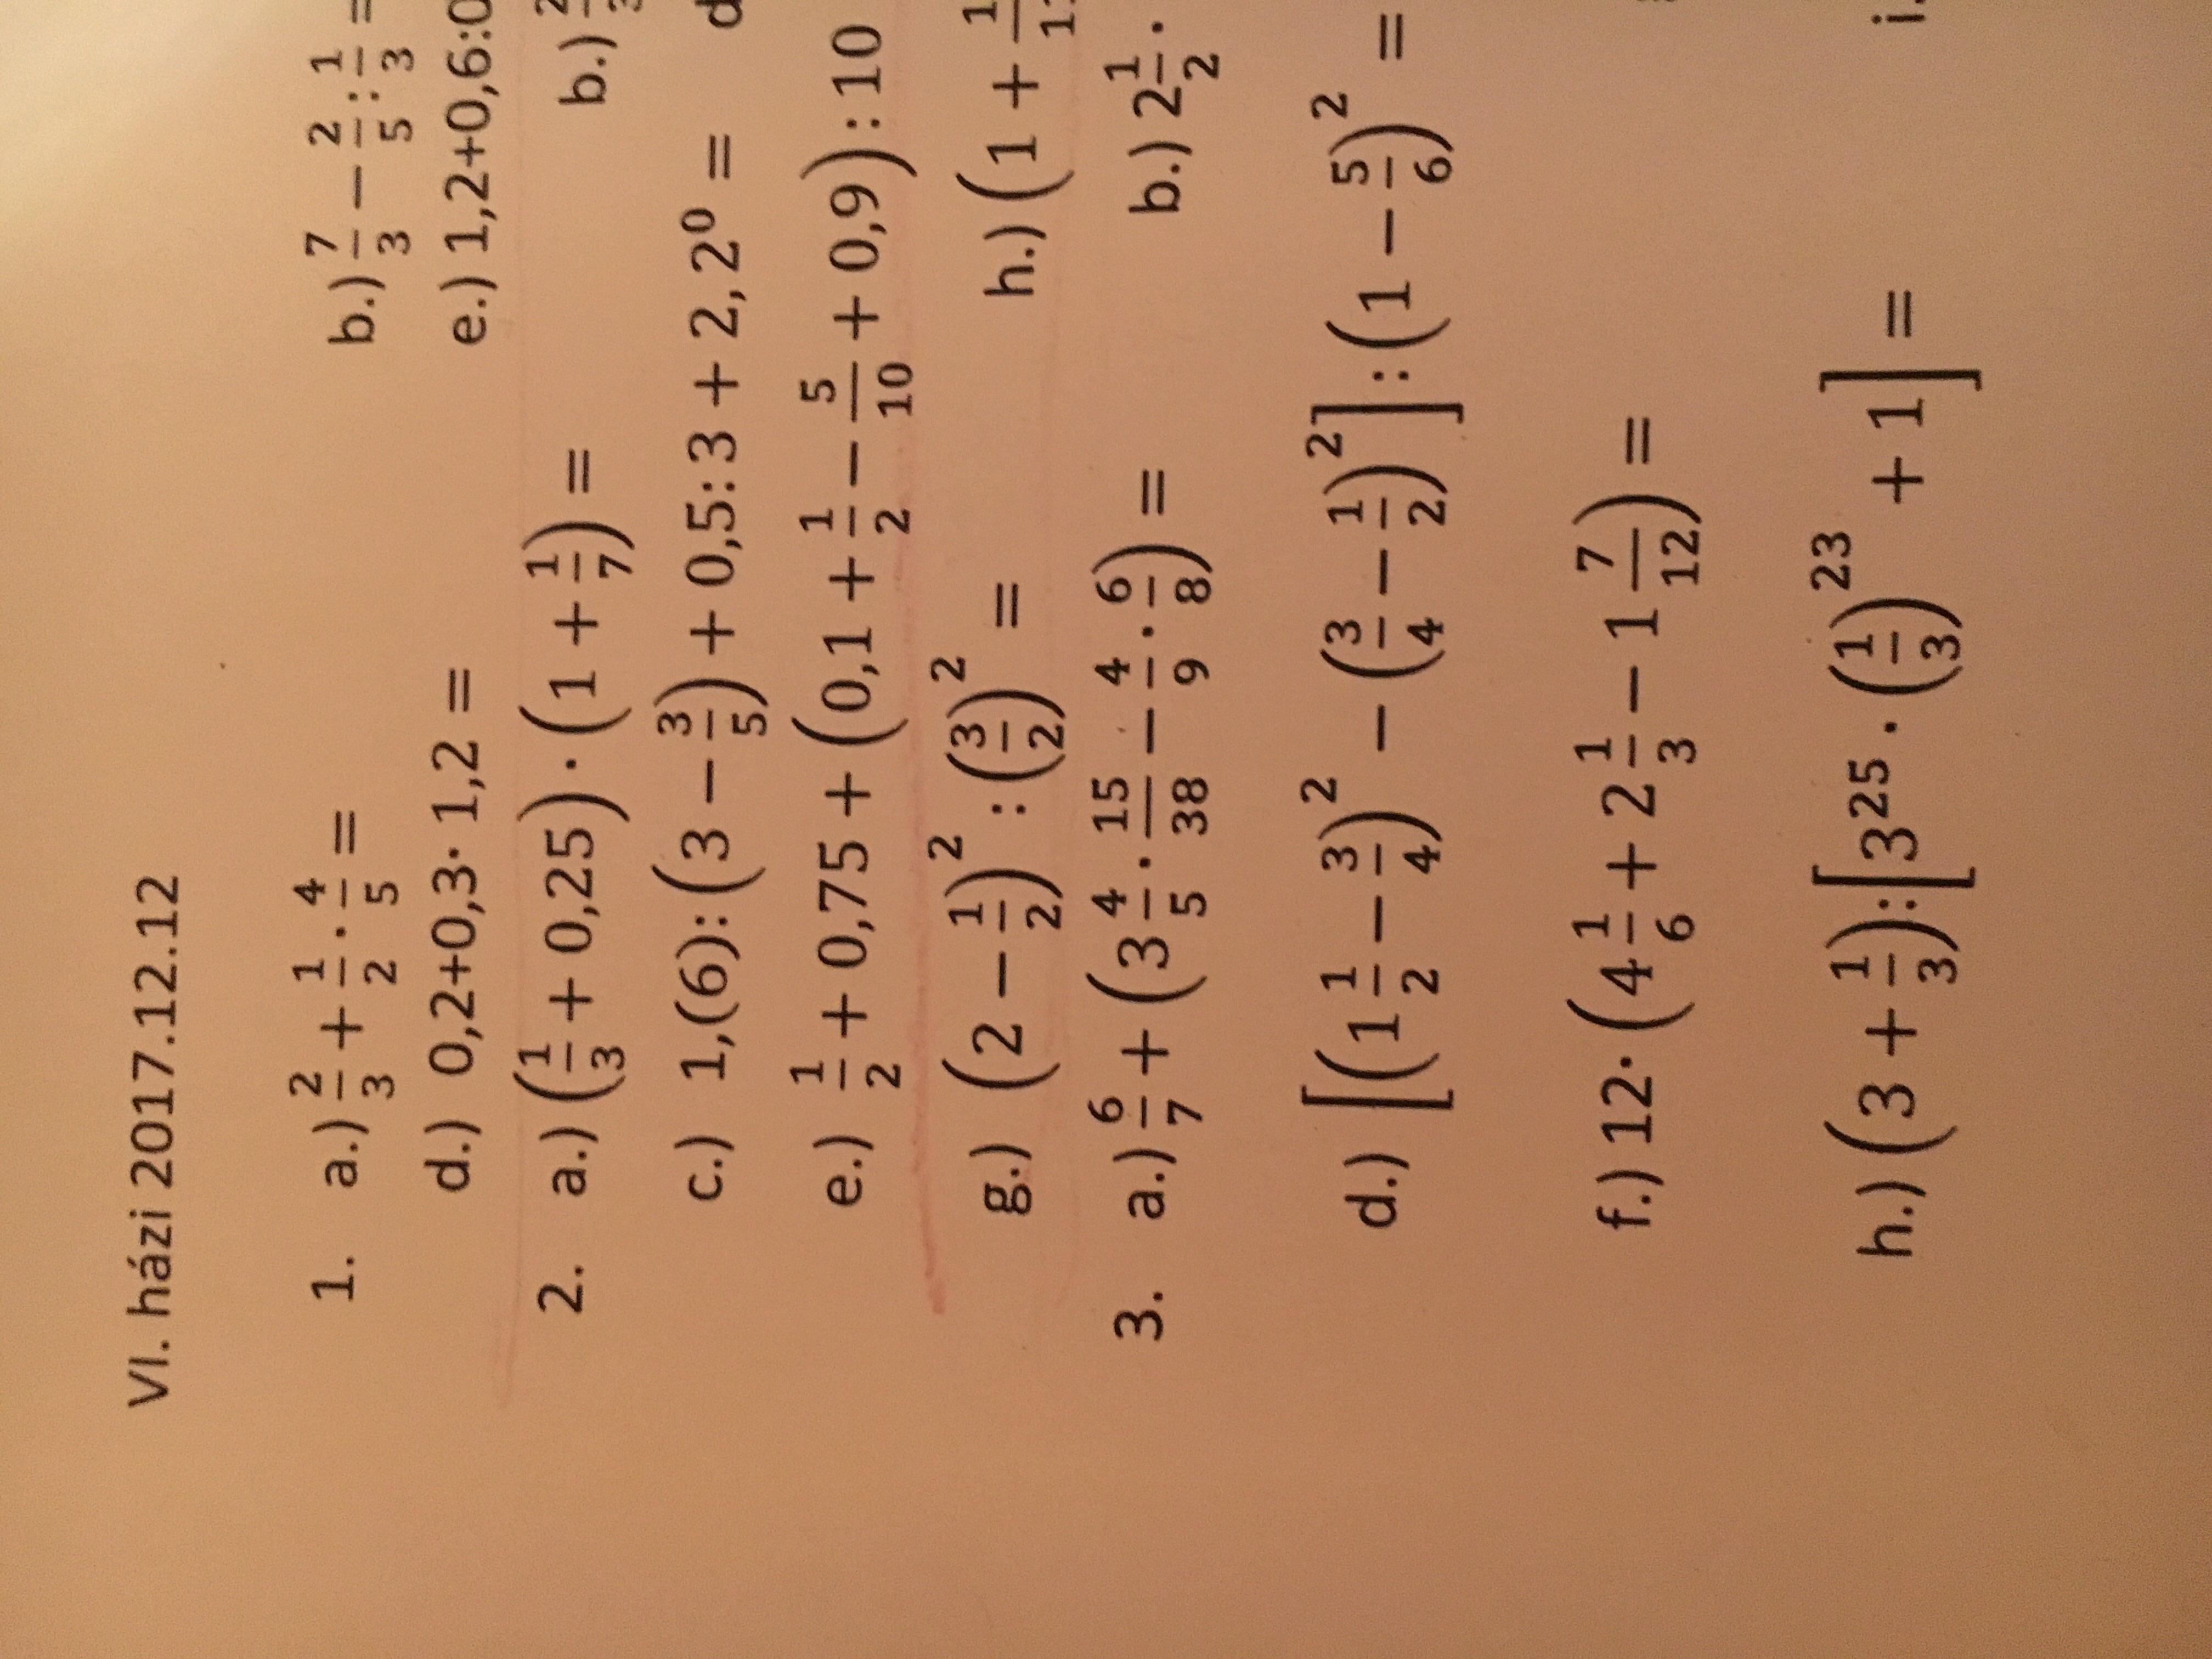 VI. házi 2017.12.12
1. a.) 2/3 + 1/2 · 4/5 = b.) 7/3 − 2/5 : 1/3 =
d.) 0,2+0,3· 1,2 = e.) 1,2+0,6:0
2. a.) (1/3 + 0,25) · (1 + 1/7) = b.)
c.) 1,(6): (3 − 3/5) + 0,5: 3 + 2,2⁰ = d
e.) 1/2 + 0,75 + (0,1 + 1/2 − 5/10 + 0,9) : 10
g.) (2 − 1/2)² : (3/2)² = h.) (1 + 1
3. a.) 6/7 + (3 4/5 · 15/38 − 4/9 · 6/8) = b.) 2 1/2 ·
d.) [(1 1/2 − 3/4)² − (3/4 − 1/2)²] : (1 − 5/6)² =
f.) 12· (4 1/6 + 2 1/3 − 1 7/12) =
h.) (3 + 1/3) : [3²⁵ · (1/3)²³ + 1] = i.